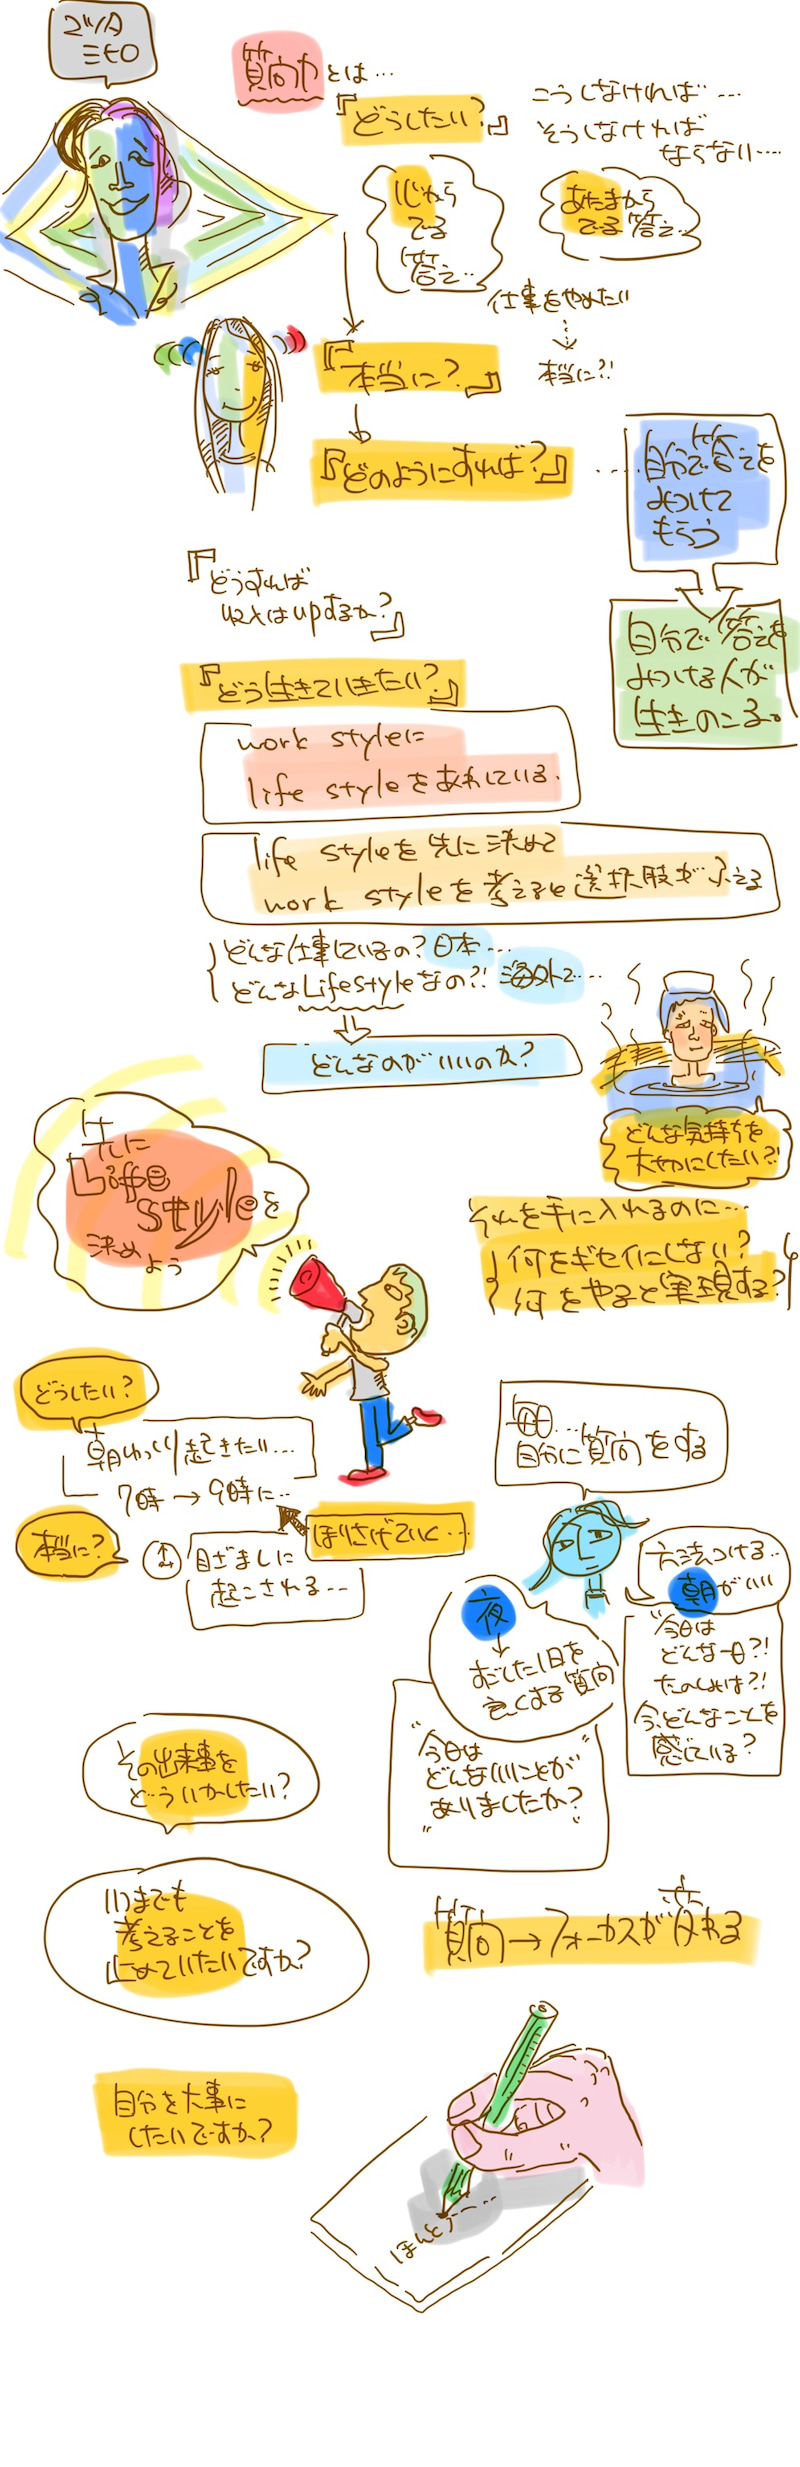 マツダ
ミヒロ
質問力とは…
『どうしたい?』
こうしなければ…
そうしなければ
ならない…
心から
でる
答え…
あたまから
でる答え…
仕事をやめたい
本当に?!
『本当に?』
『どのようにすれば?』
自分で答えを
みつけて
もらう
自分で答えを
みつける人が
生きのこる。
『どうすれば
収入はupするか?』
『どう生きていきたい?』
work styleに
life styleをあわせている.
life styleを先に決めて
work styleを考えると選択肢がふえる
どんな仕事しているの?日本…
どんなLifestyleなの?!海外で…
どんなのがいいのか?
どんな気持ちを
大切にしたい?!
それを手に入れるのに…
何をギセイにしない?
何をやると実現する?
先に
Life
styleを
決めよう
どうしたい?
朝ゆっくり起きたい…
7時→9時に…
ほりさげていく…
本当に?
目ざましに
起こされる…
毎日…
自分に質問をする
つける…
朝がいい
"今日は
どんな一日?!
たのしみは?!
今、どんなことを
感じている?
夜
すごした1日を
良くする質問
"今日は
どんないいことが
ありましたか?
"
その出来事を
どういかしたい?
いつまでも
考えることを
止めていたいですか?
質問→フォーカスが変わる
自分を大事に
したいですか?
ほんとう…